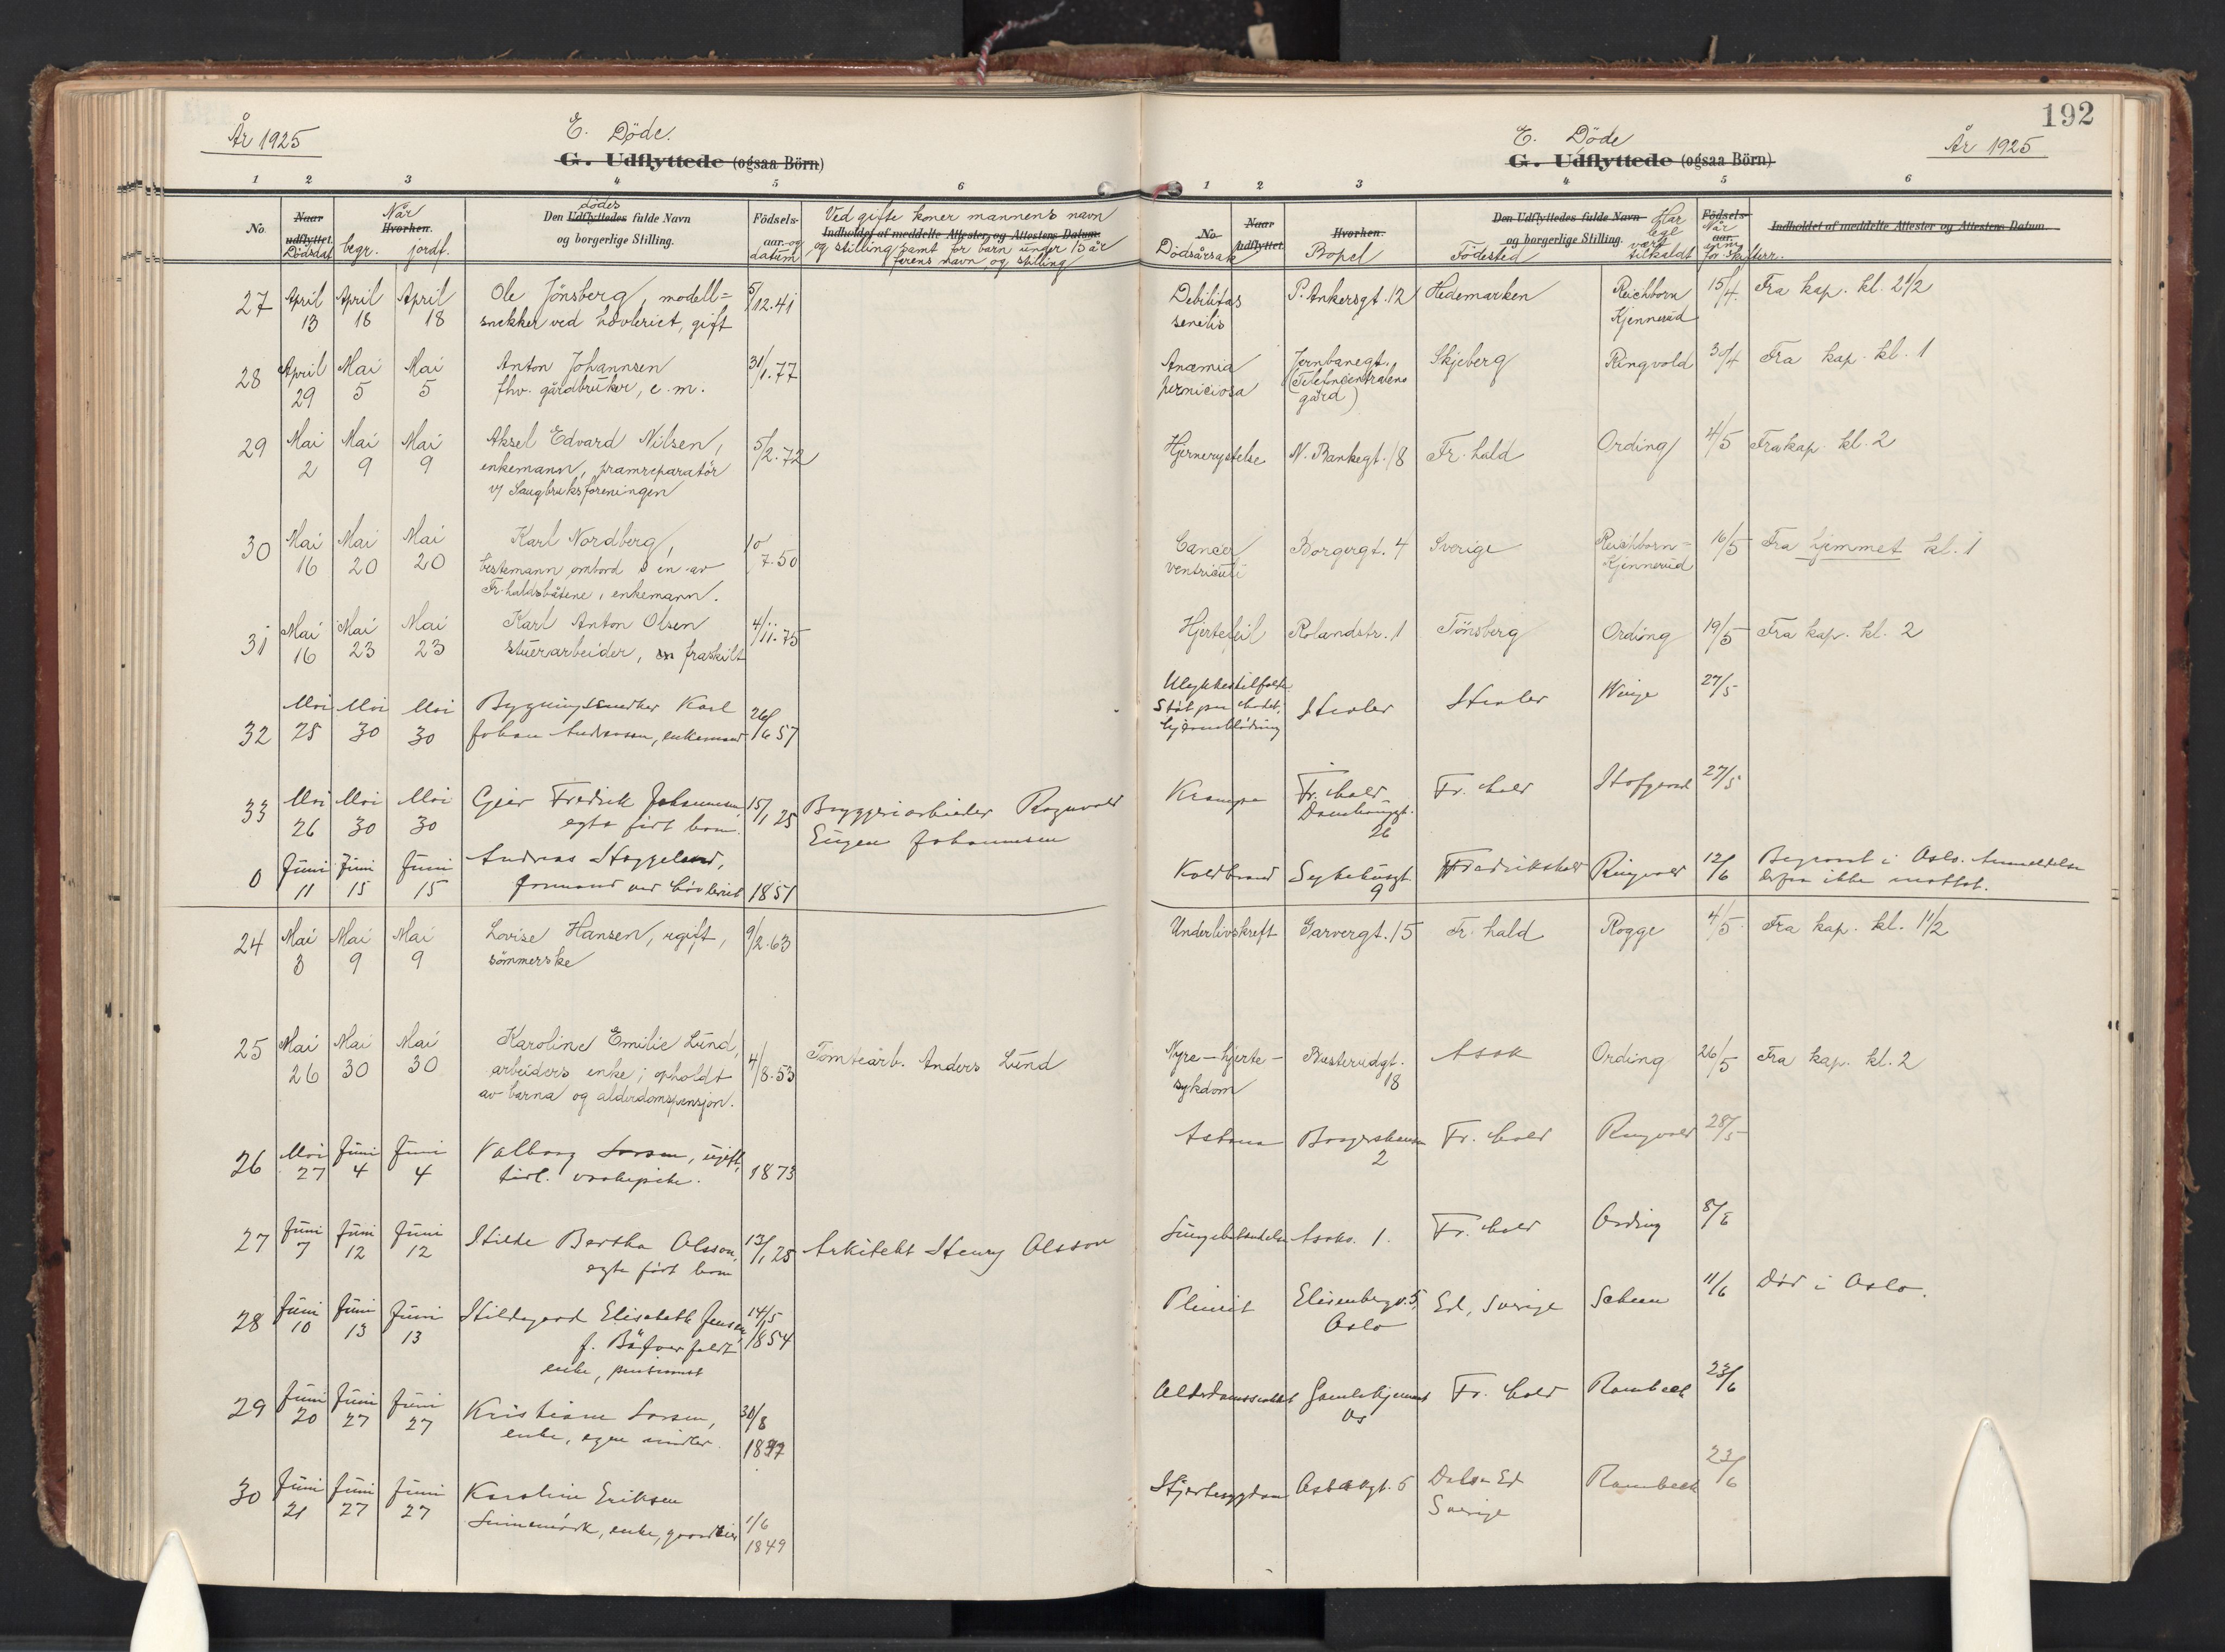 År 1925
E. Döde.
G. Udflyttede (ogsaa Börn)
1 2 3 4 5 6
No. Naar udflyttet. Dödsdat. Når Hvorhen. begr. jordf. Den Udflyttedes dödes fulde Navn og borgerlige Stilling. Födsels- aar. og datum Ved gifte koner mannens navn
Indholdet af meddelte Attester og Attestens Datum.
og stilling samt for barn under 15 år
ferens navn og stilling
27 April 13 April 18 April 18 Ole Jönsberg, modell=
snekker ved Lövleriet, gift 5/12.41
28 April 29 Mai 5 Mai 5 Anton Johannsen
fhv. gårdbruker, e.m. 31/1.77
29 Mai 2 Mai 9 Mai 9 Aksel Edvard Nilsen,
enkemann, pramreparatör
v/ Saugbruksforeningen 5/2.72
30 Mai 16 Mai 20 Mai 20 Karl Nordberg,
bestemann ombord i en av
Fr.haldsbåtene, enkemann. 10/7.50
31 Mai 16 Mai 23 Mai 23 Karl Anton Olsen
stuerarbeider, fraskilt 4/11.75
32 Mai 25 Mai 30 Mai 30 Bygningssnedker Karl
Johan Andersson, enkemand 26/6 57
33 Mai 26 Mai 30 Mai 30 Geir Fredrik Johannesen,
egte födt barn. 15/1 25 Bryggeriarbeider Ragnvald
Eugen Johannesen
0 Juni 11 Juni 15 Juni 15 Andreas
formand ved Lövleriet 1851
24 Mai 3 Mai 9 Mai 9 Lovise Hansen, ugift,
sömmerske 9/2.63
25 Mai 26 Mai 30 Mai 30 Karoline Emilie Lund,
arbeiders enke; opholdt
av barna og alderdomspensjon. 4/8.53 Tomtearb. Anders Lund
26 Mai 27 Juni 4 Juni 4 Valborg Larsen, ugift,
tidl. vaskepike. 1873
27 Juni 7 Juni 12 Juni 12 Hilde Bertha Olsson,
egte födt barn 13/1 25 Arkitekt Henry Olsson
28 Juni 10 Juni 13 Juni 13 Hildegard Elisabeth Jensen
f. Bäfverfeldt
enke, pensionist 14/5 1854
29 Juni 20 Juni 27 Juni 27 Kristiane Larsen,
enke, egne midler. 30/8
30 Juni 21 Juni 27 Juni 27 Karoline Eriksen
enke, gaardeier 1/6 1849
192
E. Döde
G. Udflyttede (ogsaa Börn)
År 1925
1 2 3 4 5 6
No. Dödsårsak Naar Udflyttet. Hvorhen. Bopel Den Udflyttedes fulde Navn og borgerlige Stilling. Födested Har lege vært tilkaldt Födsels- aar. Når anm. for skifterr. Indholdet af meddelte Attester og Attestens Datum.
Debilitas
senilis P. Ankersgt. 12 Hedemarken Reichborn
Kjennerud 15/4. Fra kap. kl. 2 1/2
Anæmia
perniciosa Jernbanegt.
(Telefoncentralens
gård) Skjeberg Ringvold 30/4 Fra kap. kl. 1
Hjernerystelse N. Bankegt. 18 Fr. hald Ording 4/5 Fra kap. kl. 2
Cancer
ventriculi Borgergt. 4 Sverige Reichborn=
Kjennerud 16/5 Fra hjemmet kl. 1
Hjertefeil Rolandstr. 1 Tönsberg Ording 19/5 Fra kap. kl. 2
Ulykkestilfelle.
Stöt paa hodet.
hjerneblödning Winge 27/5
Krampe Fr. hald
Damhauggt.
26 Fr. hald Hofgaard 27/5
Koldbrand Sykehusgt.
9 Fredrikshald Ringvold 12/6 Begravet i Oslo. Anmeldelse
derfra ikke mottat.
Underlivskreft Garvergt. 15 Fr. hald Rogge 4/5 Fra kap. kl. 1 1/2
Nyre-hjerte-
sykdom Busterudgt.
18 Asak Ording 26/5 Fra kap. kl. 2
Astma
2 Fr. hald Ringvold 28/5
Lungebetændelse Asak. 1. Fr. hald Ording 8/6
Pleurit Elisenbergv. 5,
Oslo Ed, Sverige Scheen 11/6 Död i Oslo.
Alderdomssvakhet Gamlehjemmet
Os Fr. hald Rambech 23/6
Hjertesygdom Asakgt. 5
Sverige Rambech 22/6